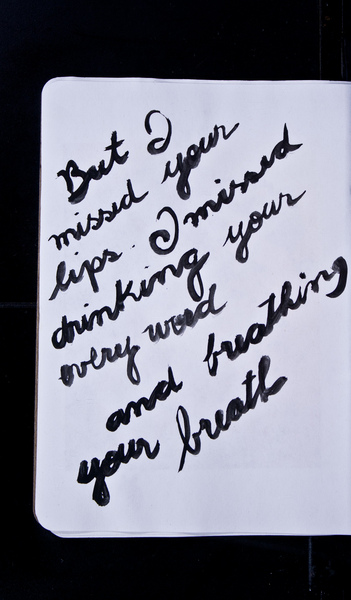 But I
missed your
lips. I missed
drinking your
every word
and breathing
your breath